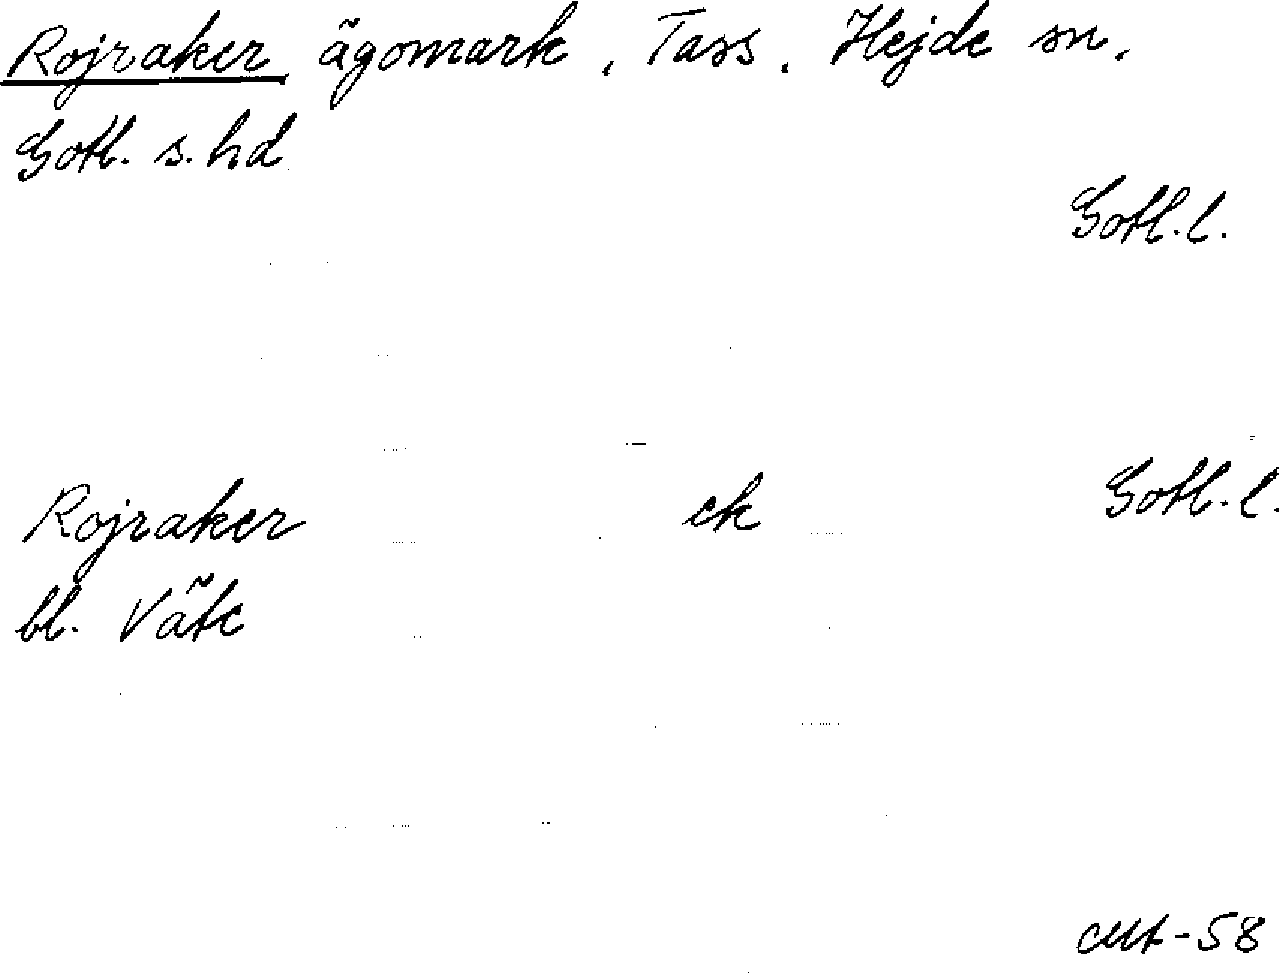 Rojraker ägomark, Tass, Hejde sn,
Gotl. s. hd
Gotl. l.
Rojraker ek Gotl. l.
bl. Väte
-58